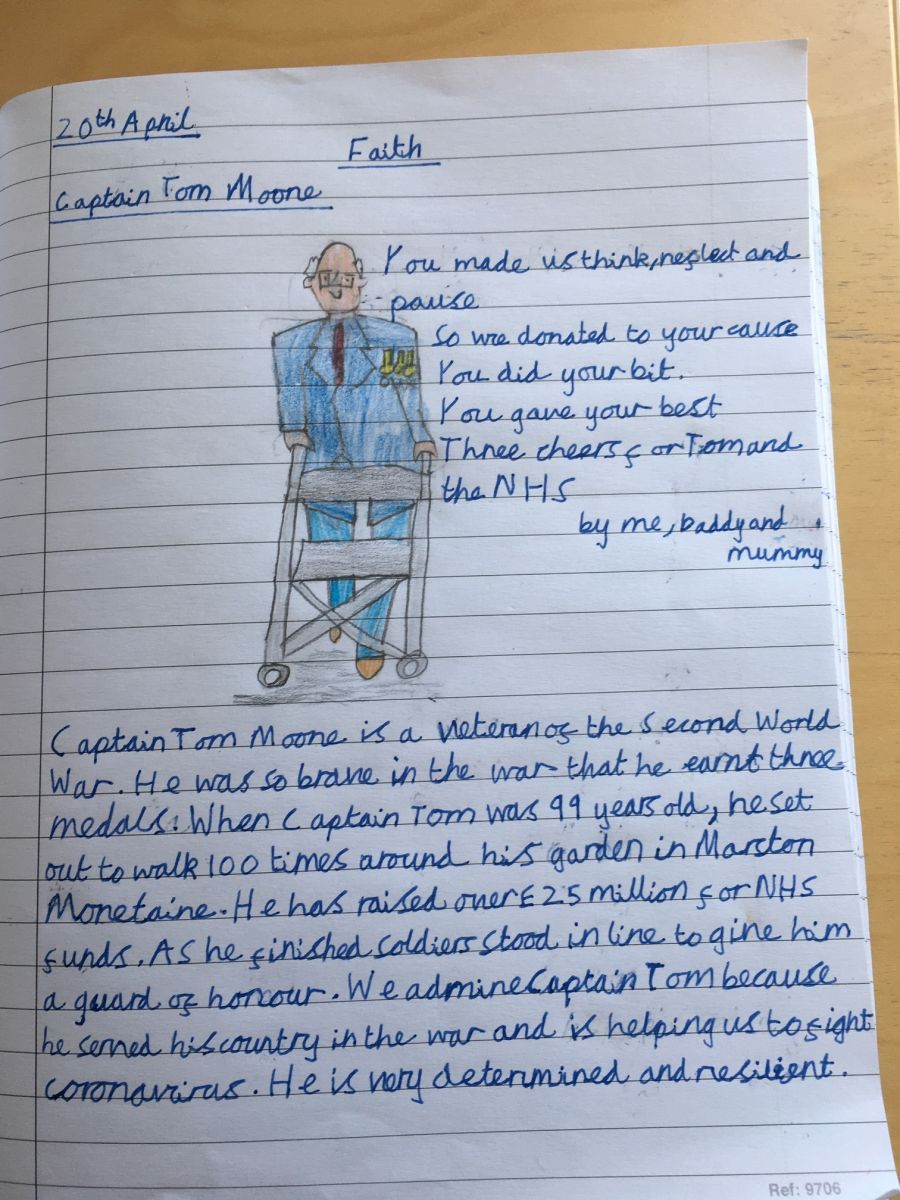 20th April
Faith
Captain Tom Moore
You made us think, reflect and
pause
So we donated to your cause
You did your bit.
You gave your best
Three cheers for Tom and
the NHS
by me, Daddy and
mummy
Captain Tom Moore is a veteran of the Second World
War. He was so brave in the war that he earnt three
medals. When Captain Tom was 99 years old, he set
out to walk 100 times around his garden in Marston
Moretaine. He has raised over £25 million for NHS
funds. As he finished soldiers stood in line to give him
a guard of honour. We admire Captain Tom because
he served his country in the war and is helping us to fight
coronavirus. He is very determined and resilient.
Ref: 9706